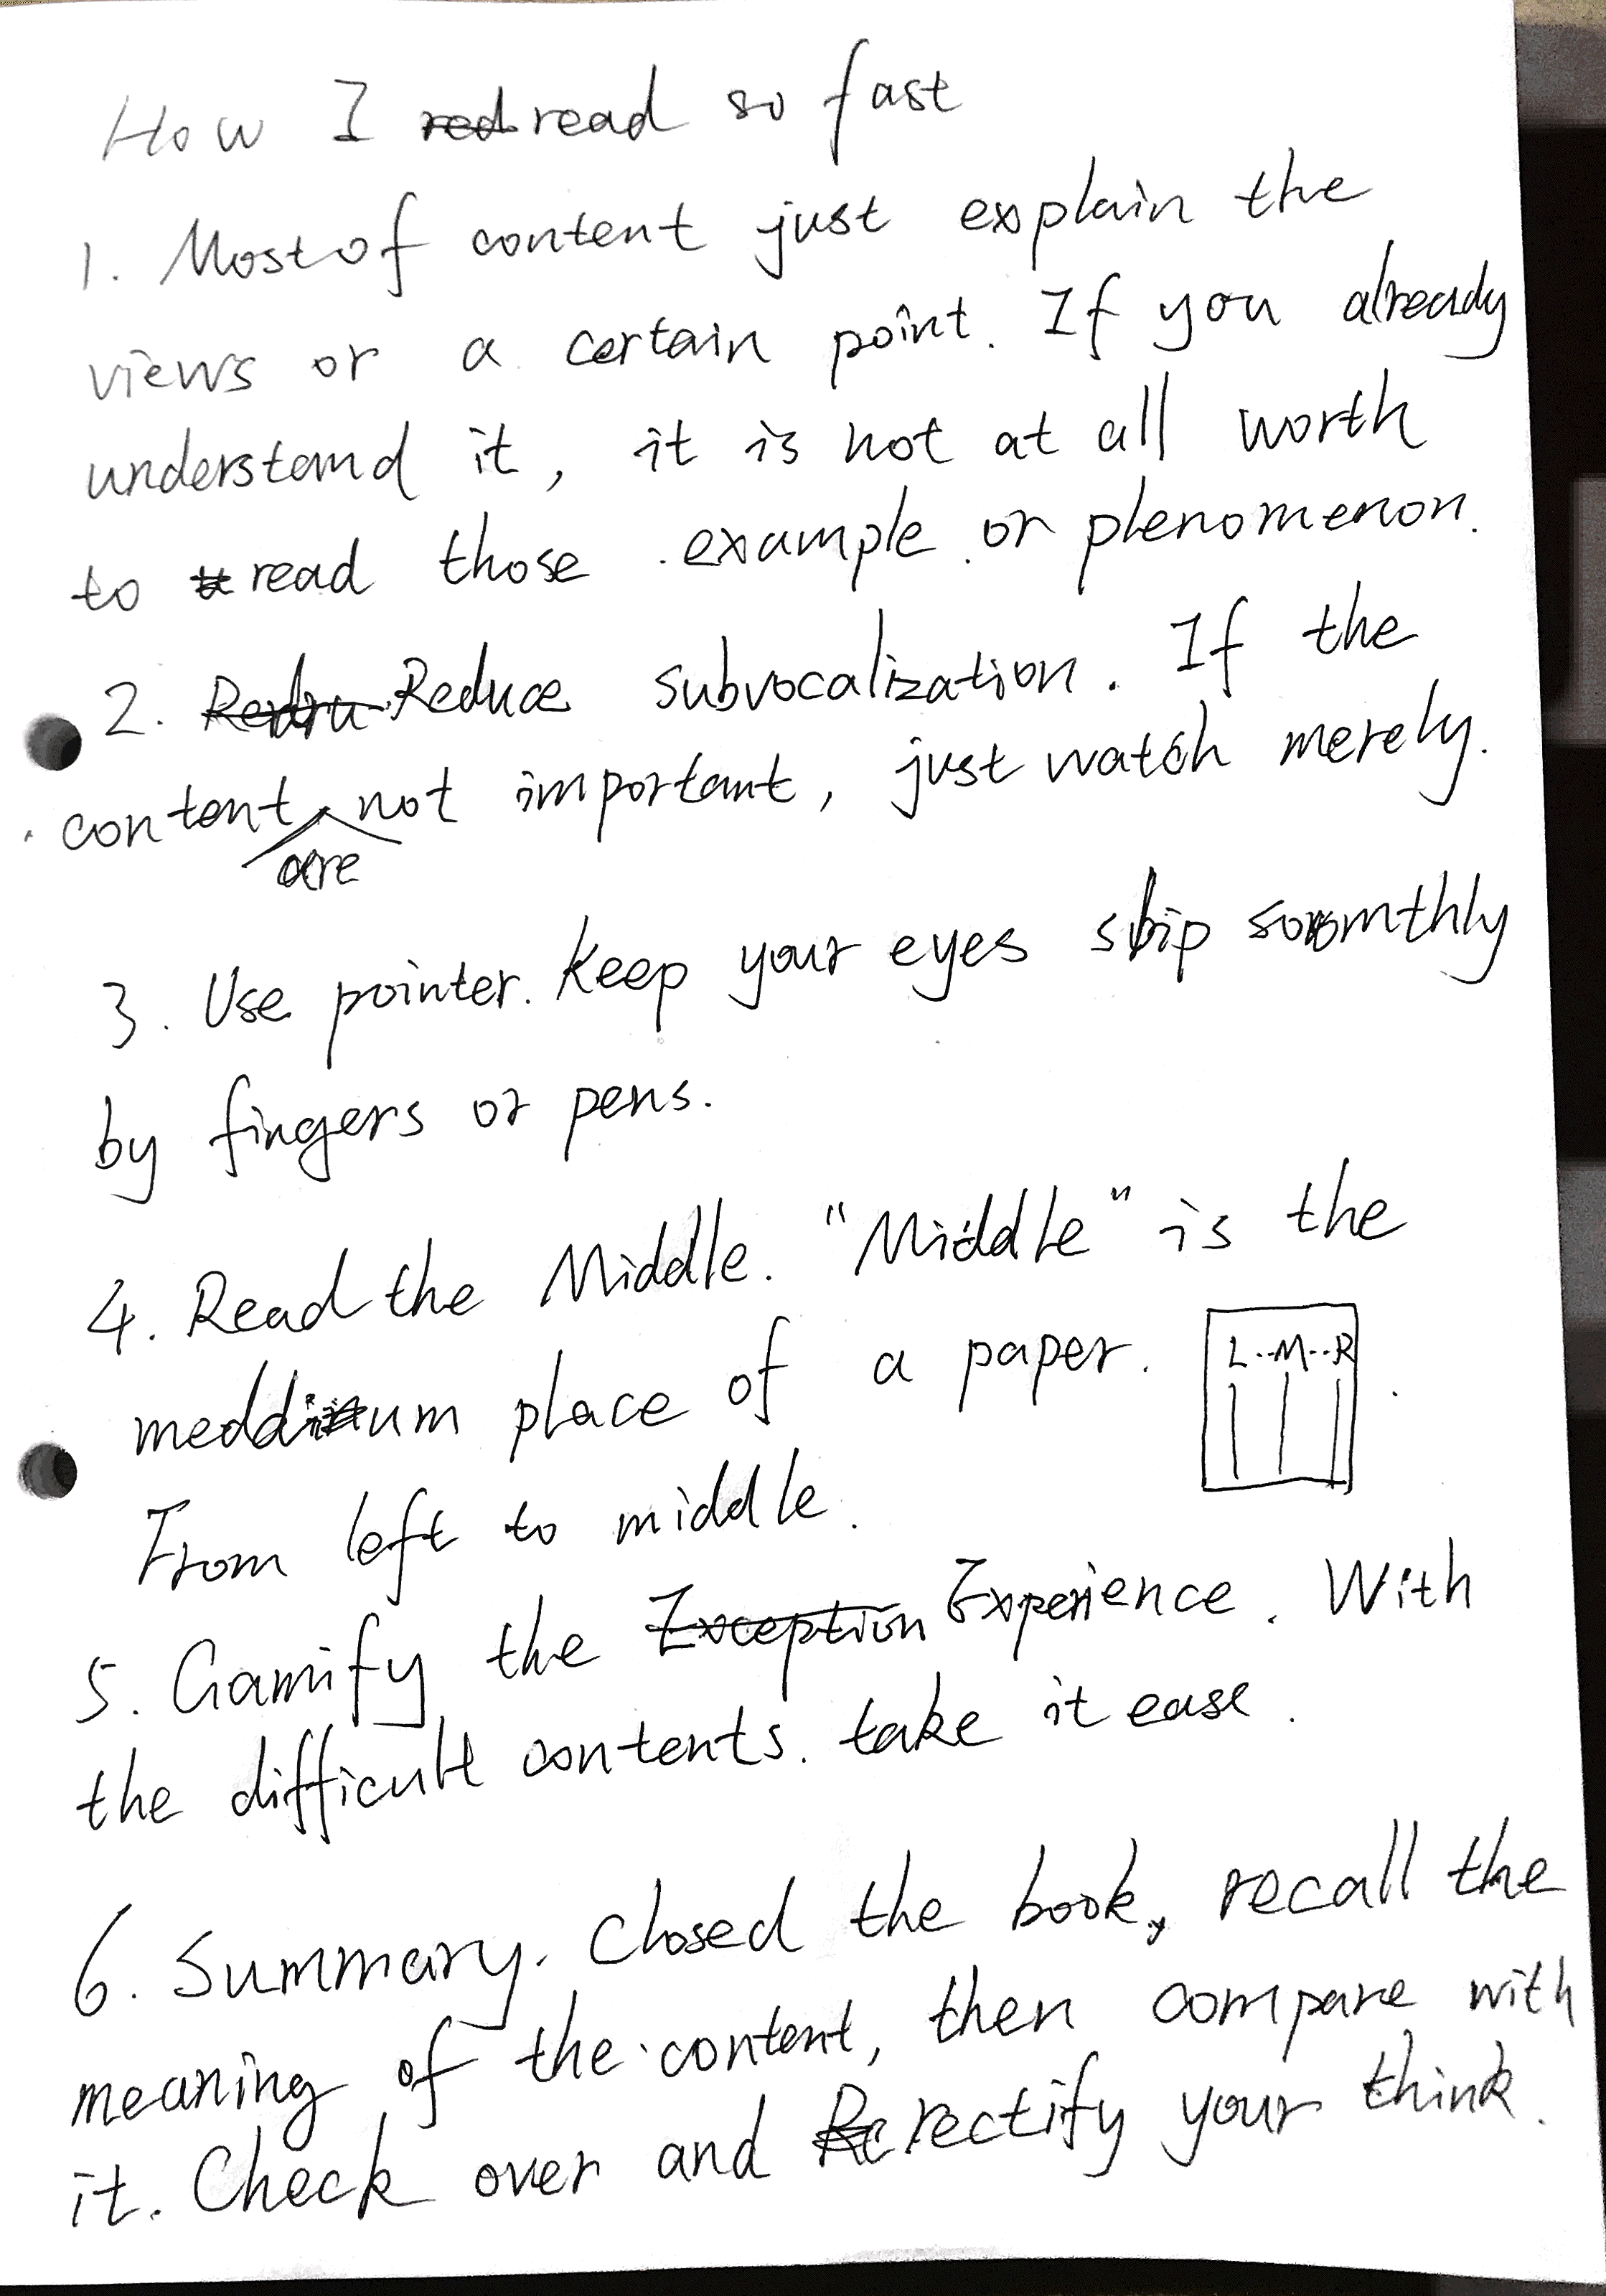 How I read so fast
1. Most of content just explain the
views or a certain point. If you already
understand it, it is not at all worth
to read those example or phenomenon.
2. Reduce subvocalization. If the
content are not important, just watch merely.
3. Use pointer. Keep your eyes skip
by fingers or pens.
4. Read the Middle. "Middle" is the
meddium place of a paper.
L..M..R
From left to middle.
5. Gamify the Experience. With
the difficult contents. take it ease.
6. Summary. Closed the book, recall the
meaning of the content, then compare with
it. Check over and rectify your think.